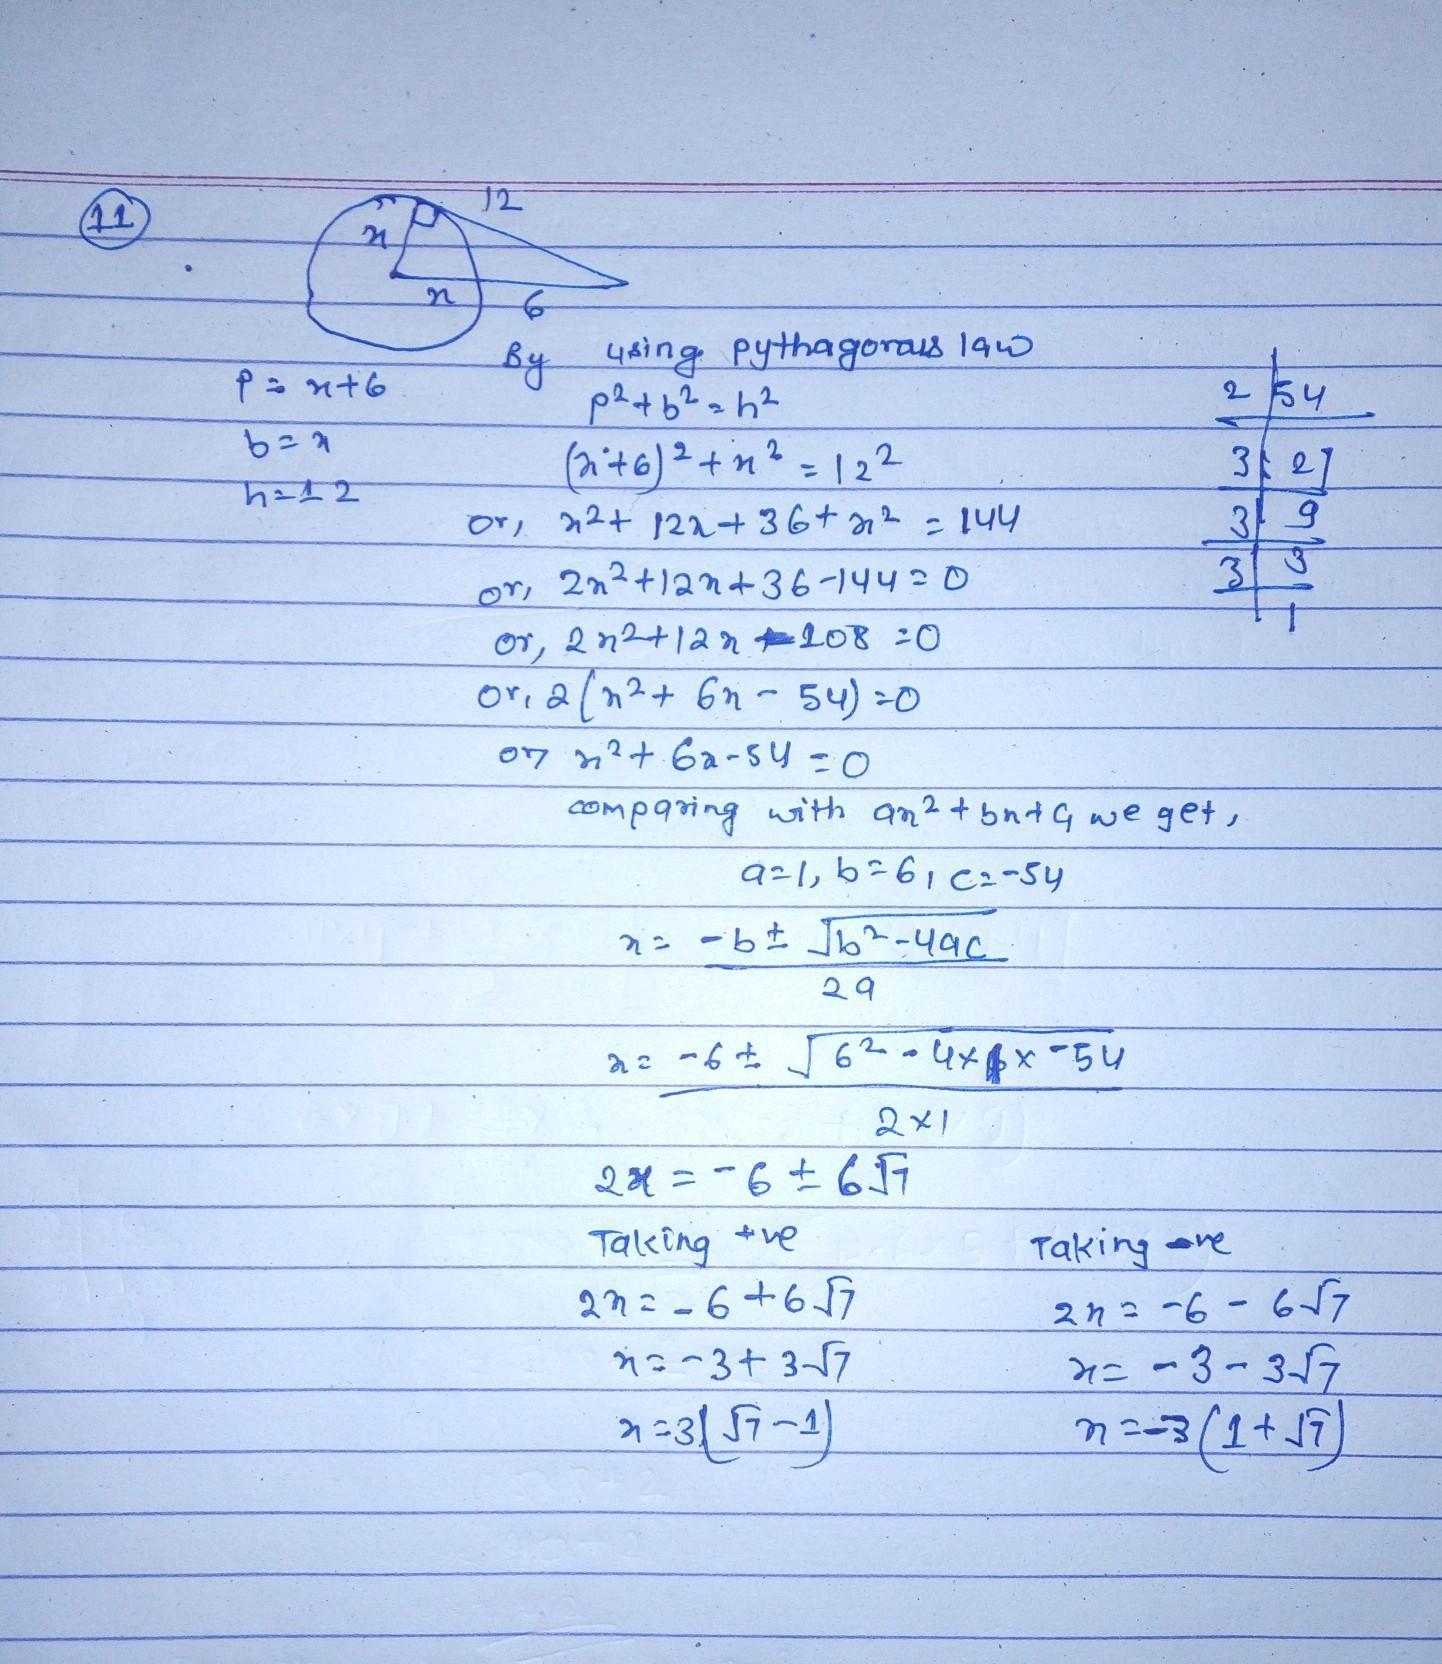 11
12
x
x 6
P = x+6
b = x
h = 12
By using pythagoraus law
p² + b² = h²
(x+6)² + x² = 12²
or, x² + 12x + 36 + x² = 144
or, 2x² + 12x + 36 - 144 = 0
or, 2x² + 12x - 108 = 0
or, 2(x² + 6x - 54) = 0
or x² + 6x - 54 = 0
comparing with ax² + bx + c, we get,
a=1, b=6, c=-54
x = -b ± √b² - 4ac
2a
x = -6 ± √6² - 4×1×-54
2×1
2x = -6 ± 6√7
Taking +ve
2x = -6 + 6√7
x = -3 + 3√7
x = 3(√7 - 1)
Taking -ve
2x = -6 - 6√7
x = -3 - 3√7
x = -3(1 + √7)
2 54
3 27
3 9
3 3
1